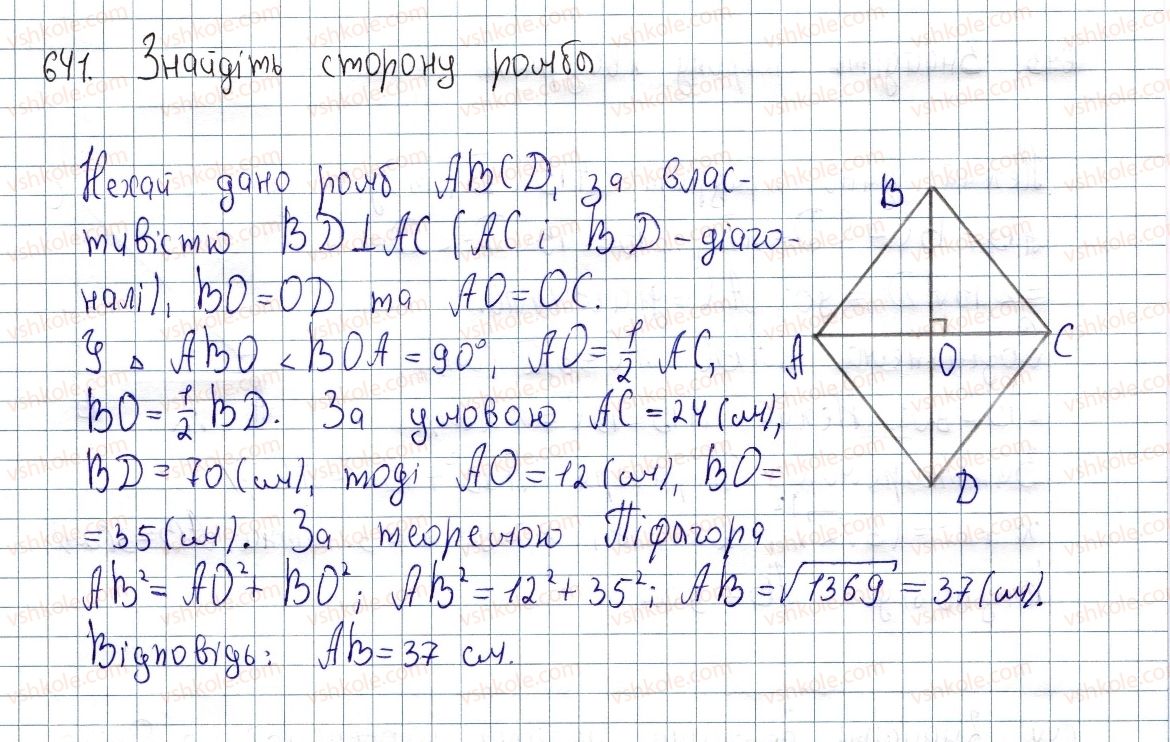 641. Знайдіть сторону ромбы
Нехай дано ромб ABCD, за влас-
тивістю BD⊥AC (AC і BD – діаго-
налі), BO=OD та AO=OC.
У △ ABO <BOA=90°, AO=1/2 AC,
BO=1/2 BD. За умовою AC=24(см),
BD=70(см), тоді AO=12(см), BO=
=35(см). За теоремою Піфагора
AB²=AO²+BO²; AB²=12²+35²; AB=√1369=37(см).
Відповідь: AB=37 см.
B
A
O
C
D
vshkole.com